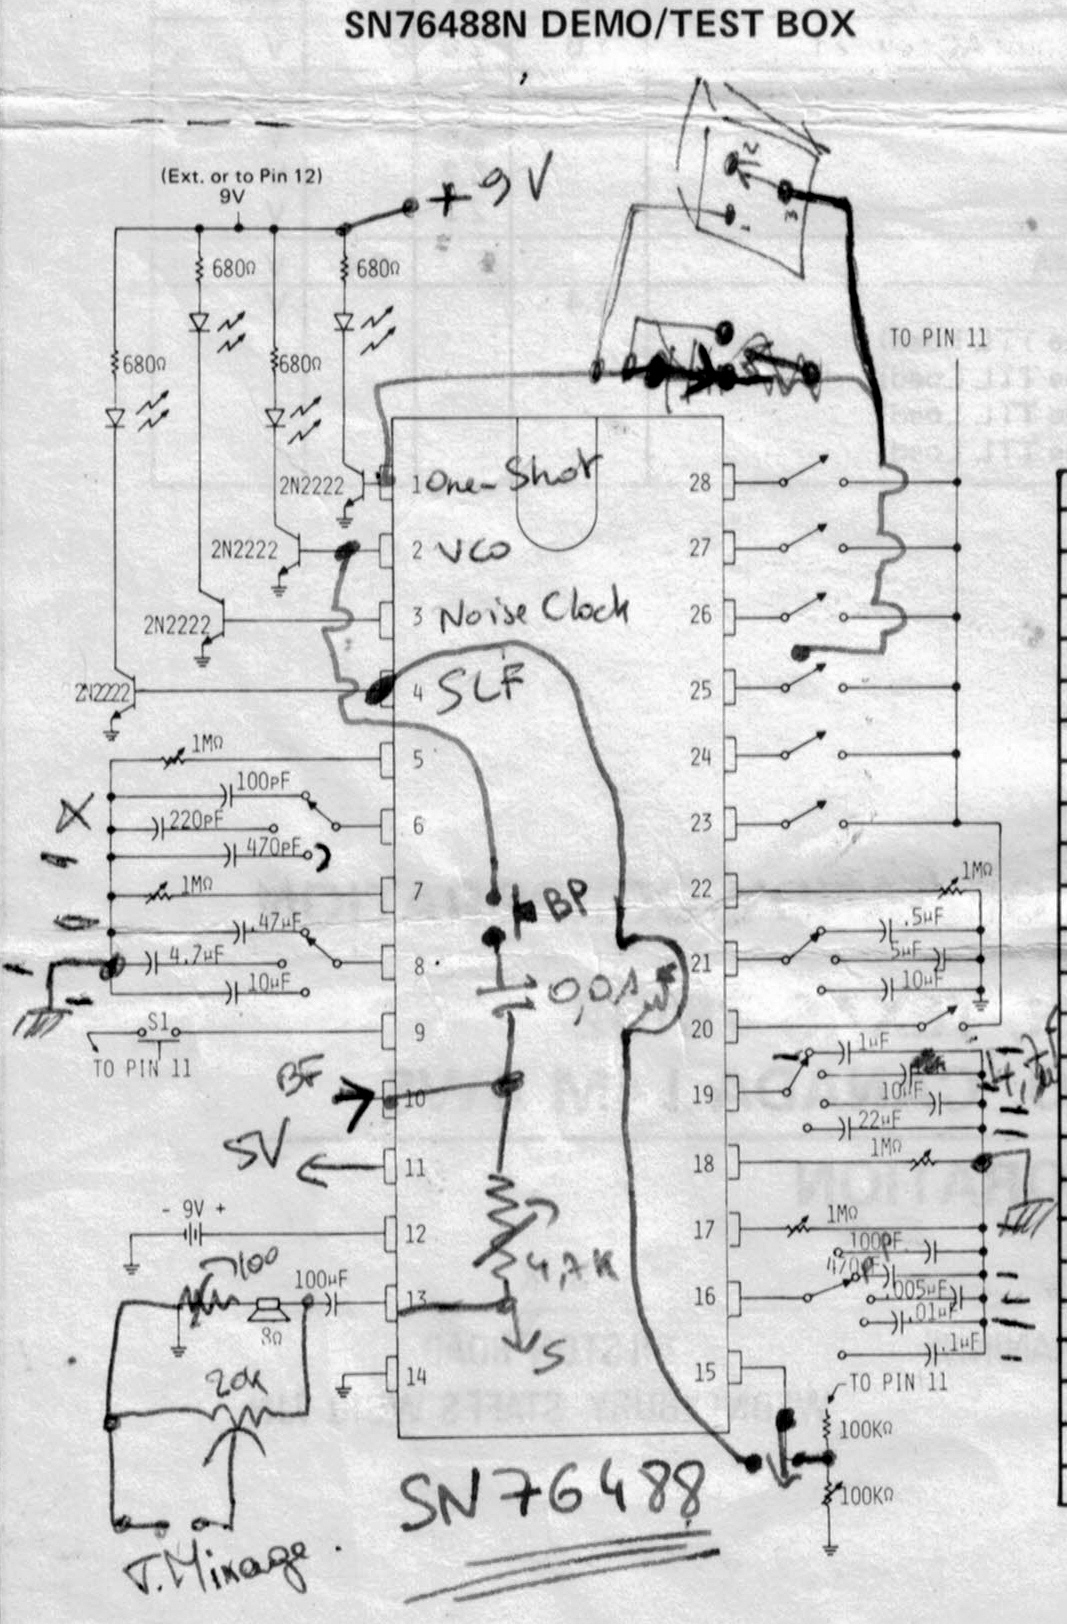 SN76488N DEMO/TEST BOX
(Ext. or to Pin 12)
9V
+9V
680Ω
680Ω
680Ω
680Ω
2 1 3
TO PIN 11
2N2222
2N2222
2N2222
2N2222
1 One-Shot
2 VCO
3 Noise Clock
4 SLF
5
6
7
8
9
10
11
12
13
14
28
27
26
25
24
23
22
21
20
19
18
17
16
15
1MΩ
100pF
220pF
470pF
1MΩ
.47µF
4.7µF
10µF
S1
TO PIN 11
BF
5V
- 9V +
100
100µF
8Ω
20K
T.Mixage.
BP
0,01
4,7K
S
1MΩ
.5µF
5µF
10µF
1µF
4,7µF
10µF
22µF
1MΩ
1MΩ
100pF
470pF
.005µF
.01µF
.1µF
TO PIN 11
100KΩ
100KΩ
SN76488